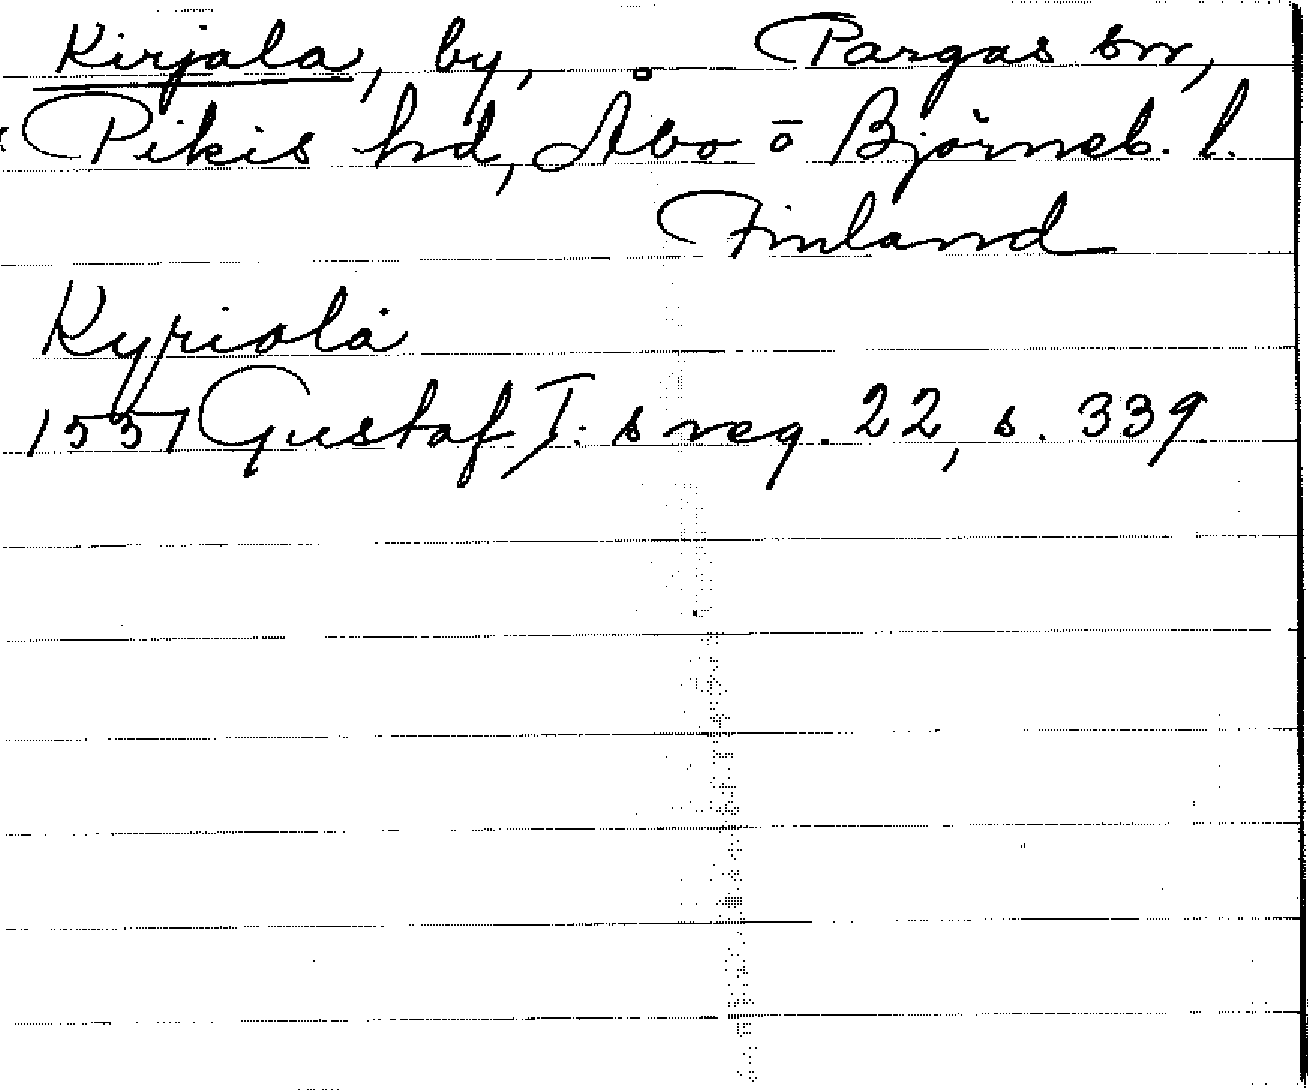 Kirjala, by, Pargas sn,
Pikis hd, Åbo ō Björneb. l.
Finland
Kyriola
1551 Gustaf I: s reg. 22, s. 339